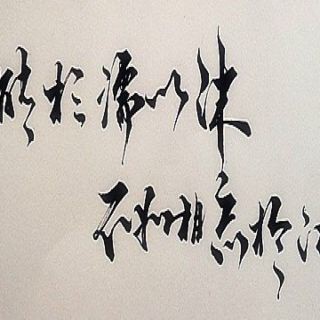 於濡以沫
不如相忘於